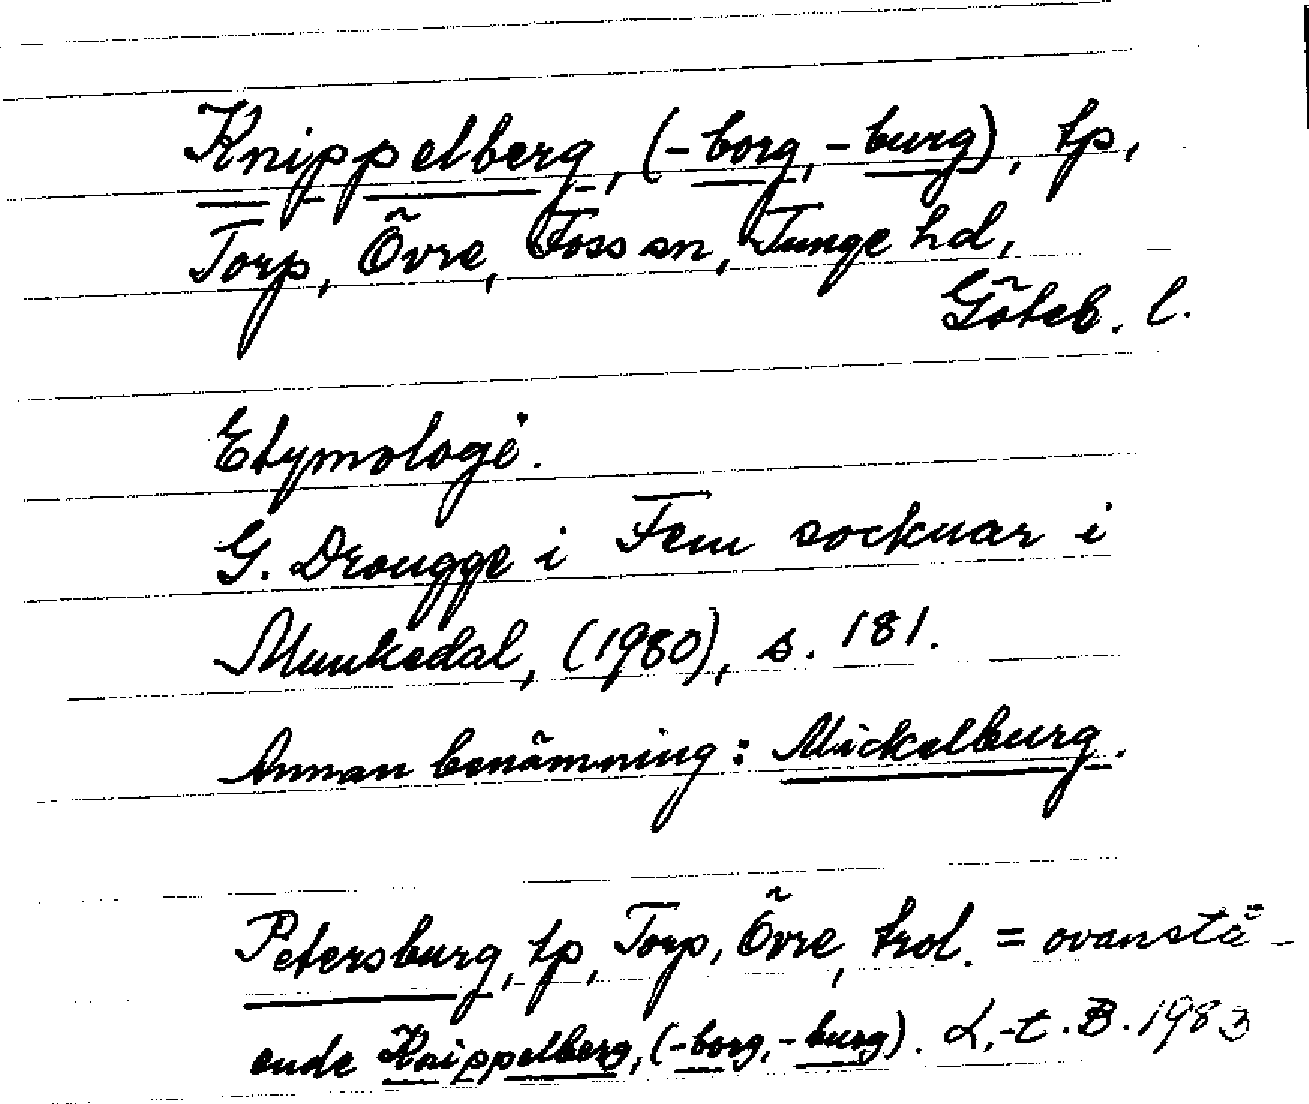 Knippelberg, (-borg, -burg), tp,
Torp, Övre, Foss sn, Tunge hd,
Göteb. l.
Etymologi.
G. Drougge i Fem socknar i
Munkedal, (1980), s. 181.
Annan benämning: Mickelburg.
Petersburg, tp, Torp, Övre, trol. = ovanstå-
ende Knippelberg, (-borg, -burg). L.-t. B. 1983